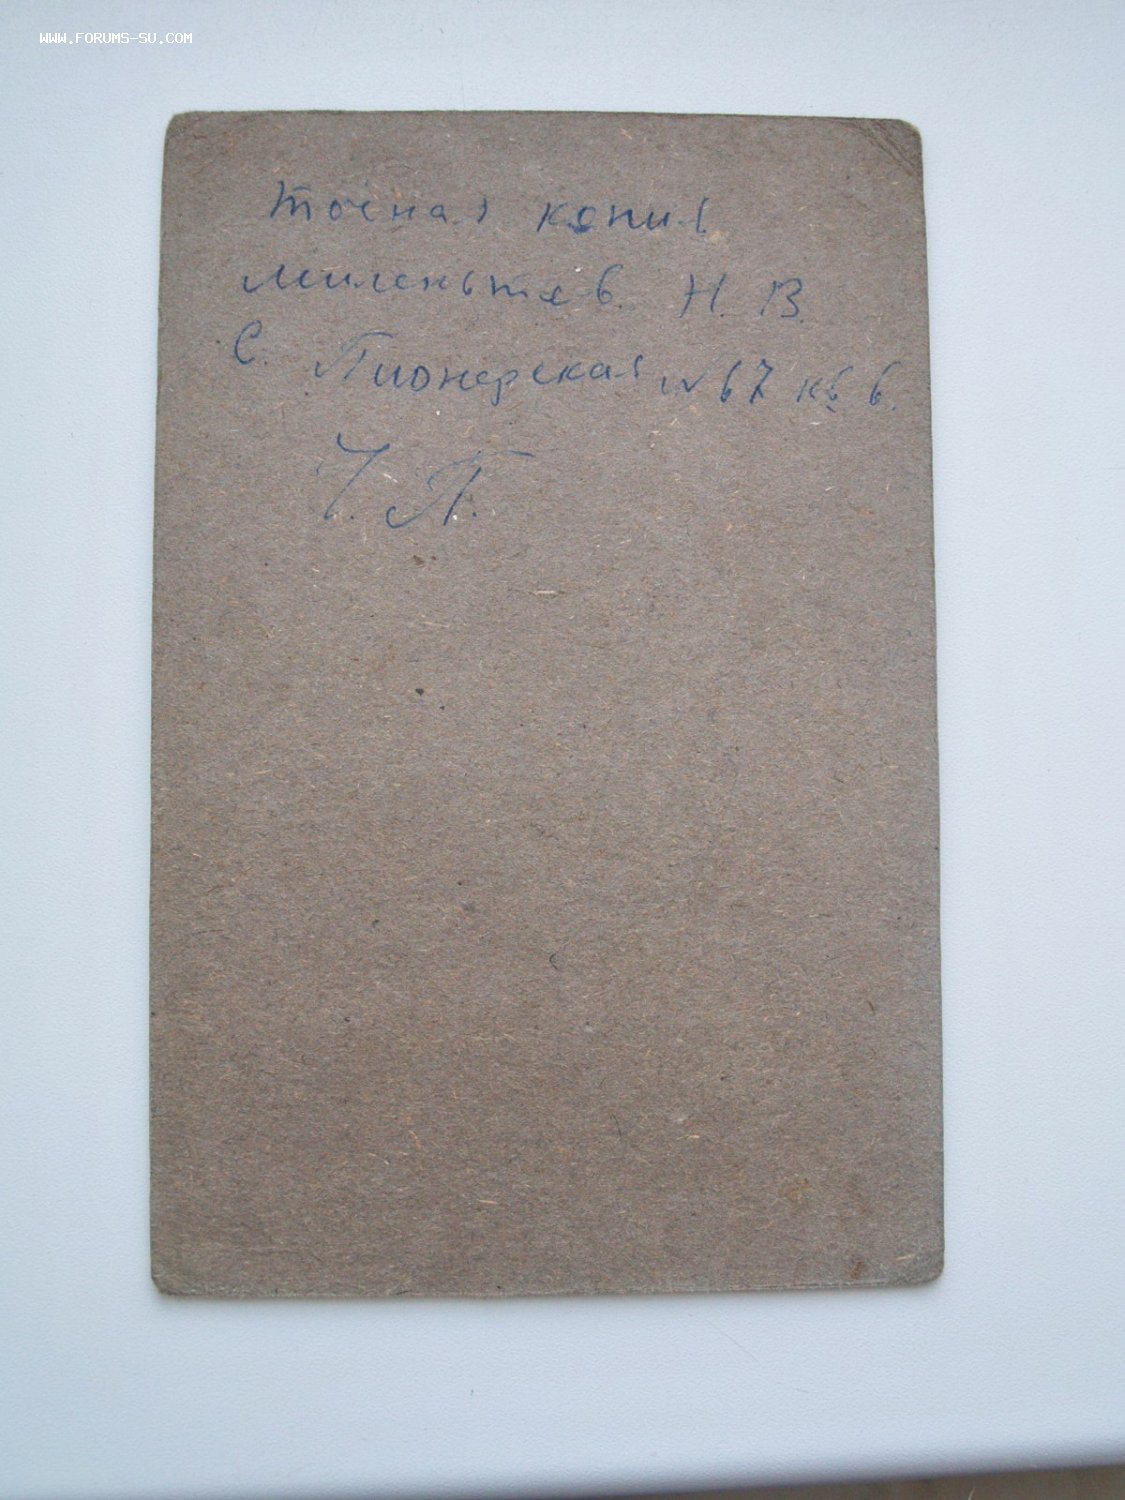 WWW.FORUMS-SU.COM
точная копия
Милентьев Н. В.
С. Пионерская № 67 кв 6.
Ч. П.